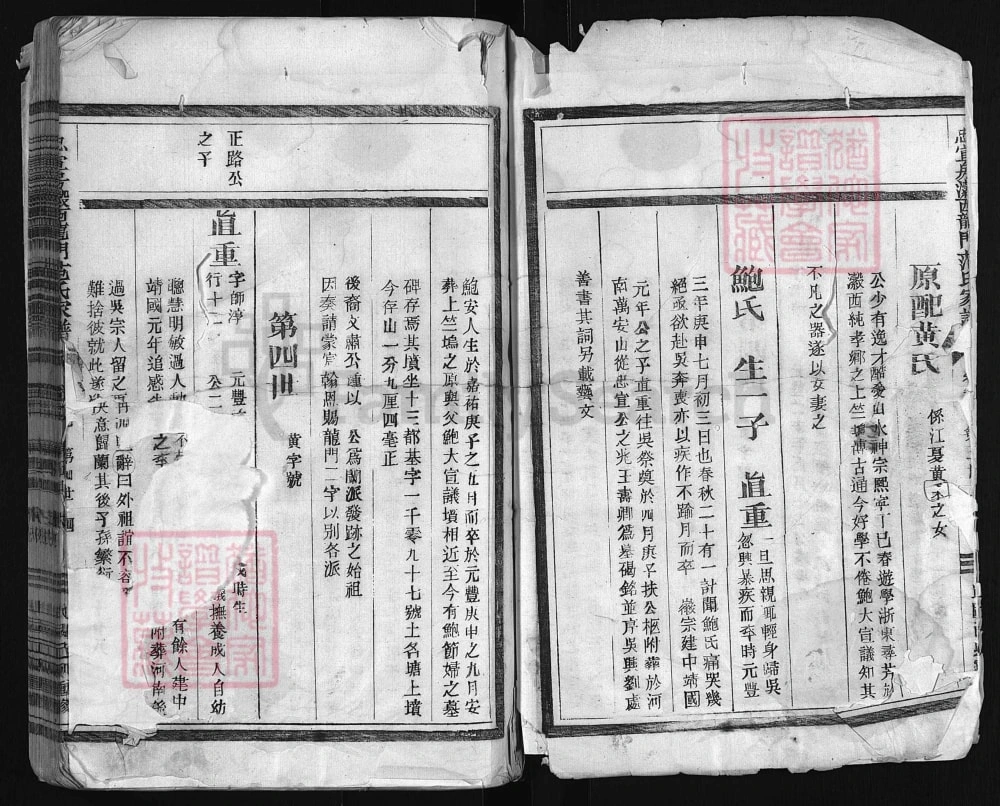 忠宣房瀫西龍門范氏家譜
原配黃氏
係江夏黃季之女
公少有逸才酷愛山水神宗熙寧丁巳春遊學浙東尋芳於
瀫西純孝鄉之上竺塢博古通今好學不倦鮑大宣議知其
不凡之器遂以女妻之
鮑氏 生一子 直重
一旦思親輒輕身歸吳
忽興暴疾而卒時元豐
三年庚申七月初三日也春秋二十有一訃聞鮑氏痛哭幾
絕亟欲赴吳奔喪亦以疾作不踰月而卒 徽宗建中靖國
元年公之子直重往吳祭奠於四月庚子扶公柩附葬於河
南萬安山從忠宣公之兆王壽卿爲墓碣銘並序吳興劉
善書其詞另載藝文
鮑安人生於嘉祐庚子之五月而卒於元豐庚申之九月安
葬上竺塢之原與父鮑大宣議墳相近至今有鮑節婦之墓
碑存焉其墳坐十三都基字一千零九十七號土名塘上墳
今存山一分九厘四毫正
後裔文肅公鍾以 公爲蘭派發跡之始祖
因奏請蒙 翰恩賜龍門二字以別各派
第四世
黃字號
正路公
之子
直重
字師淳
行十二
元豐
公二
時生
撫養成人自幼
聰慧明敏過人
有餘人建中
靖國元年追感
之
附葬河南
過吳宗人留之再四 辭曰外祖誼不容
難捨彼就此遂決意歸蘭其後子孫繁衍